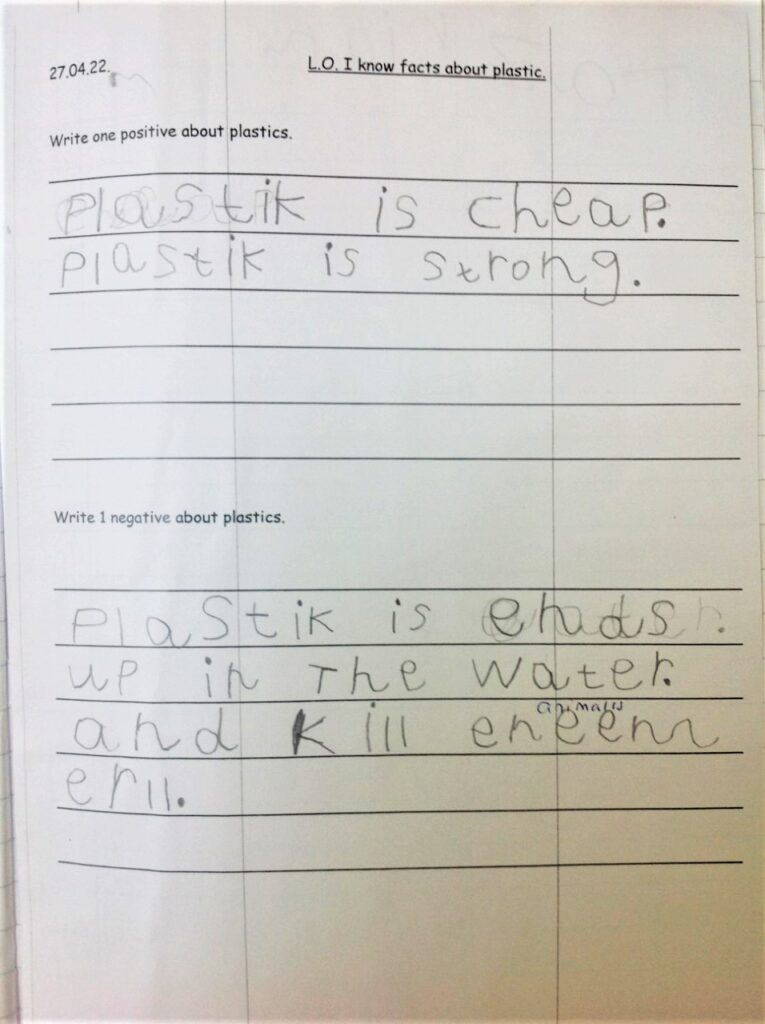 27.04.22.
L.O. I know facts about plastic.
Write one positive about plastics.
Plastik is cheap.
Plastik is strong.
Write 1 negative about plastics.
Plastik is ends.
up in The water.
animals
and kill eneem
erll.